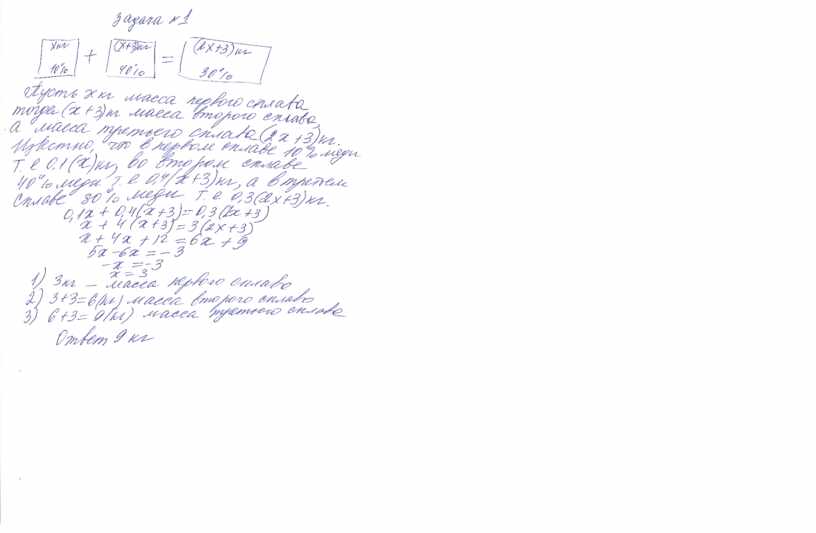 Задача №1
xкг (x+3)кг (2x+3)кг
+ =
10% 40% 30%
Пусть x кг масса первого сплава
тогда (x+3)кг масса второго сплава,
а масса третьего сплава (2x+3)кг.
Известно, что в первом сплаве 10% меди
т.е 0.1(x)кг, во втором сплаве
40% меди т.е 0,4(x+3)кг, а в третем
сплаве 30% меди т.е 0,3(2x+3)кг.
0,1x + 0,4(x+3)=0,3(2x+3)
x + 4(x+3)=3(2x+3)
x + 4x + 12 = 6x + 9
5x-6x = -3
-x = -3
x = 3
1) 3кг – масса первого сплава
2) 3+3=6(кг) масса второго сплава
3) 6+3= 9(кг) масса третьего сплава
Ответ 9 кг